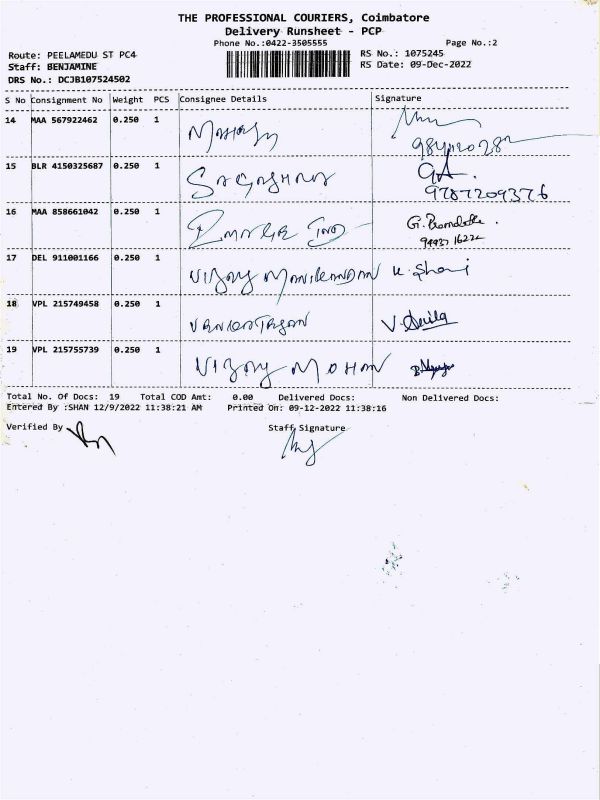 THE PROFESSIONAL COURIERS, Coimbatore
Delivery Runsheet - PCP
Phone No.:0422-3505555 Page No.:2
Route: PEELAMEDU ST PC4 RS No.: 1075245
Staff: BENJAMINE RS Date: 09-Dec-2022
DRS No.: DCJB107524502
S No Consignment No Weight PCS Consignee Details Signature
14 MAA 567922462 0.250 1
15 BLR 4150325687 0.250 1
9787209376
16 MAA 858661042 0.250 1
17 DEL 911001166 0.250 1 VIJAY MANIKANDAN K. Shani
18 VPL 215749458 0.250 1 VENKATESAN
19 VPL 215755739 0.250 1 VIJAY MOHAN
Total No. Of Docs: 19 Total COD Amt: 0.00 Delivered Docs: Non Delivered Docs:
Entered By :SHAN 12/9/2022 11:38:21 AM Printed On: 09-12-2022 11:38:16
Verified By Staff Signature